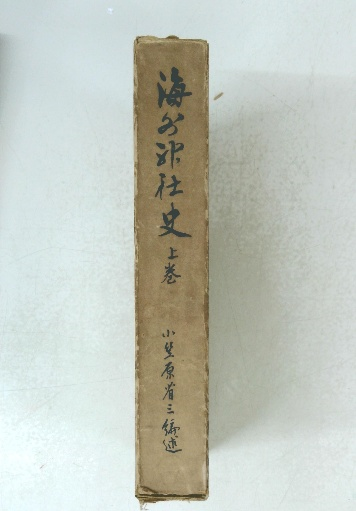 海外神社史 上巻
小笠原省三編述